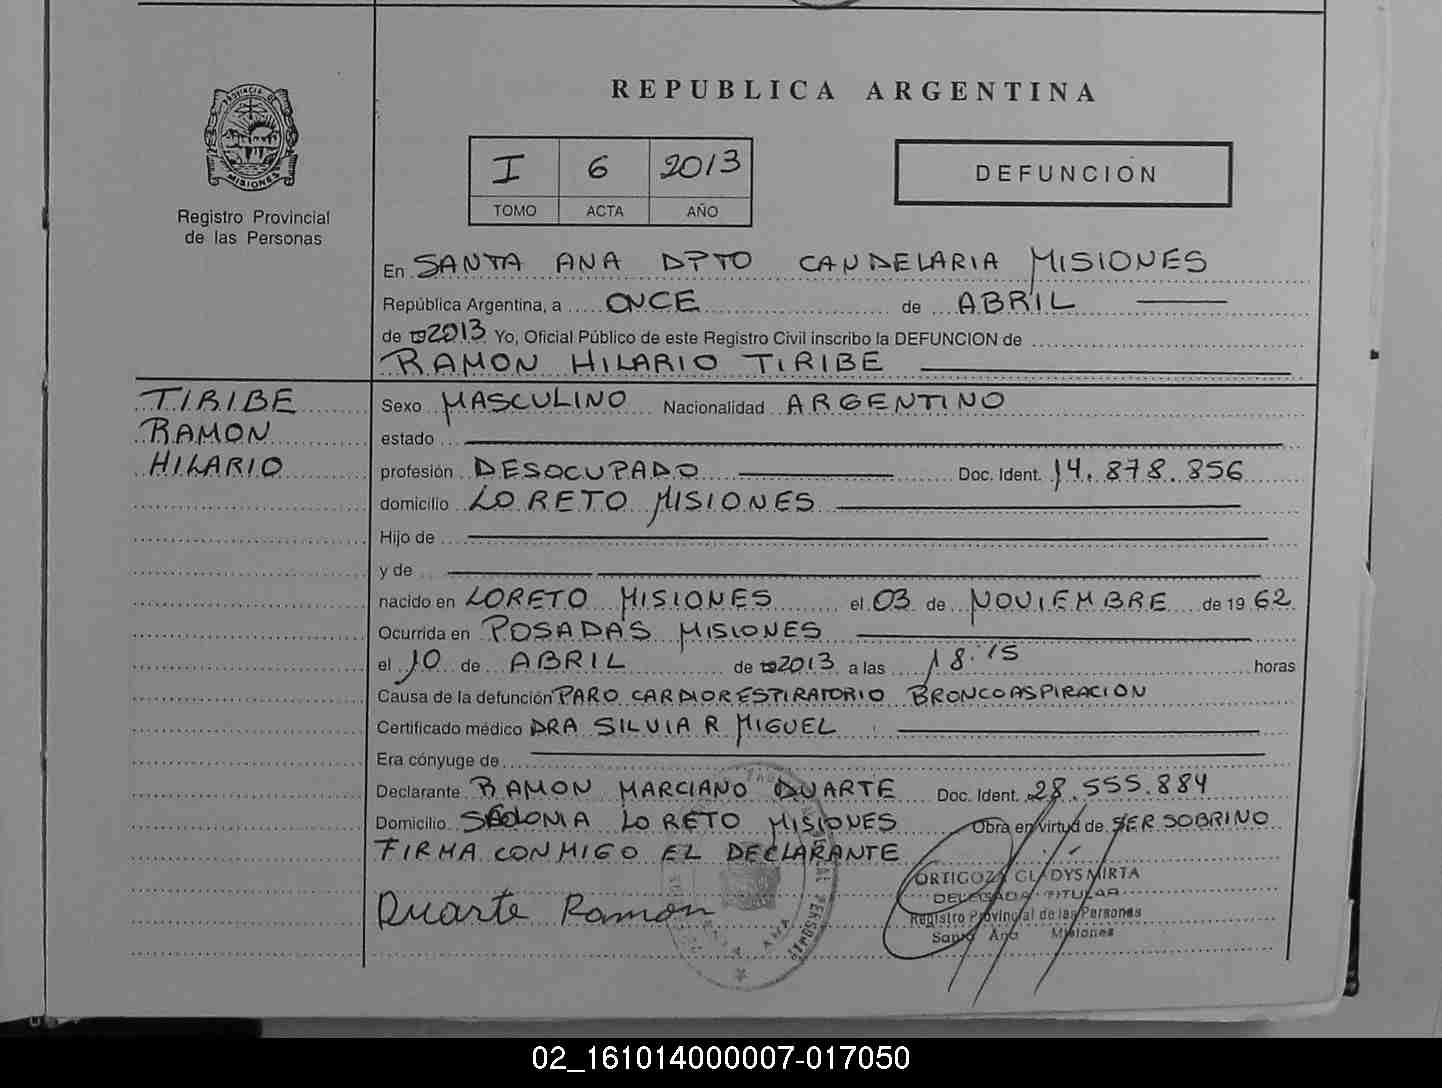 REPUBLICA ARGENTINA
PROVINCIA D
MISIONES
Registro Provincial
de las Personas
I 6 2013
TOMO ACTA AÑO
DEFUNCION
En SANTA ANA DPTO CANDELARIA MISIONES
República Argentina, a ONCE de ABRIL
de 2013 Yo, Oficial Público de este Registro Civil inscribo la DEFUNCION de
RAMON HILARIO TIRIBE
TIRIBE
RAMON
HILARIO
Sexo MASCULINO Nacionalidad ARGENTINO
estado
profesión DESOCUPADO Doc. Ident. 14.878.856
domicilio LORETO MISIONES
Hijo de
y de
nacido en LORETO MISIONES el 03 de NOVIEMBRE de 1962
Ocurrida en POSADAS MISIONES
el 10 de ABRIL de 2013 a las 18:15 horas
Causa de la defunción PARO CARDIORESPIRATORIO BRONCOASPIRACION
Certificado médico DRA SILVIA R MIGUEL
Era cónyuge de
Declarante RAMON MARCIANO DUARTE Doc. Ident. 28.555.884
Domicilio LORETO MISIONES Obra en virtud de SER SOBRINO
FIRMA CONMIGO EL DECLARANTE
Duarte Ramon
ORTIGOZA GLADYS MIRTA
DELEGADA TITULAR
Registro Provincial de las Personas
Santa Ana Misiones
02_161014000007-017050